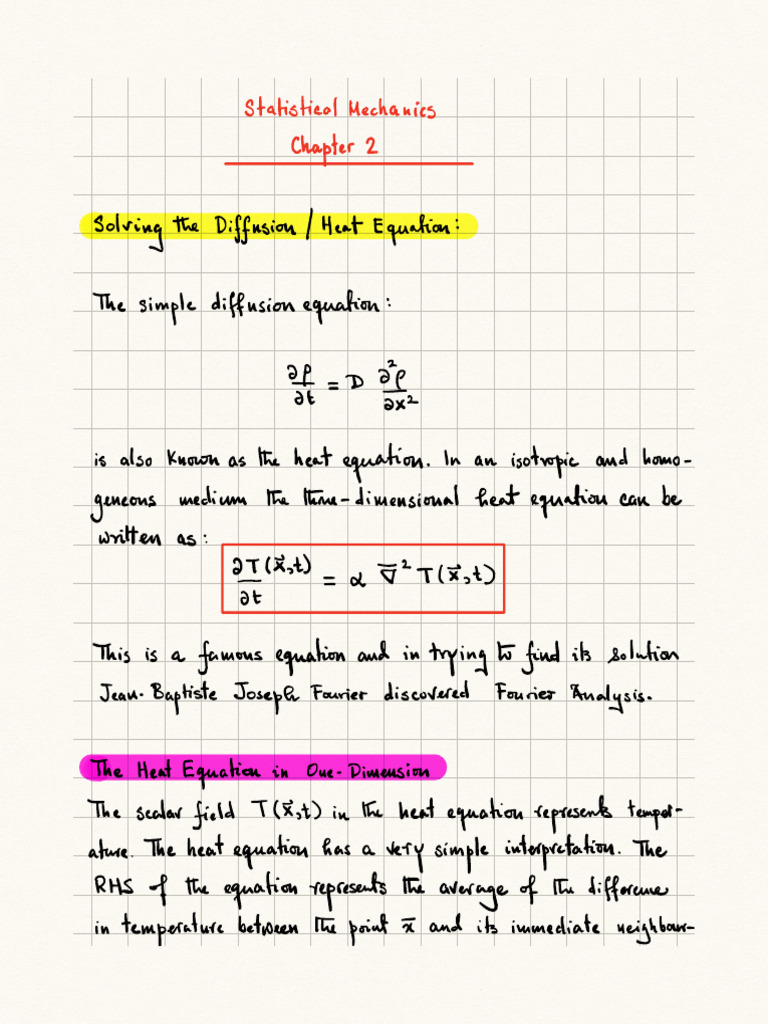 Statistical Mechanics
Chapter 2
Solving the Diffusion / Heat Equation:
The simple diffusion equation:
∂ρ/∂t = D ∂²ρ/∂x²
is also known as the heat equation. In an isotropic and homo-
geneous medium the three-dimensional heat equation can be
written as:
∂T(x⃗,t)/∂t = α ∇̅² T(x⃗,t)
This is a famous equation and in trying to find its solution
Jean-Baptiste Joseph Fourier discovered Fourier Analysis.
The Heat Equation in One-Dimension
The scalar field T(x⃗,t) in the heat equation represents temper-
ature. The heat equation has a very simple interpretation. The
RHS of the equation represents the average of the difference
in temperature between the point x̅ and its immediate neighbour-